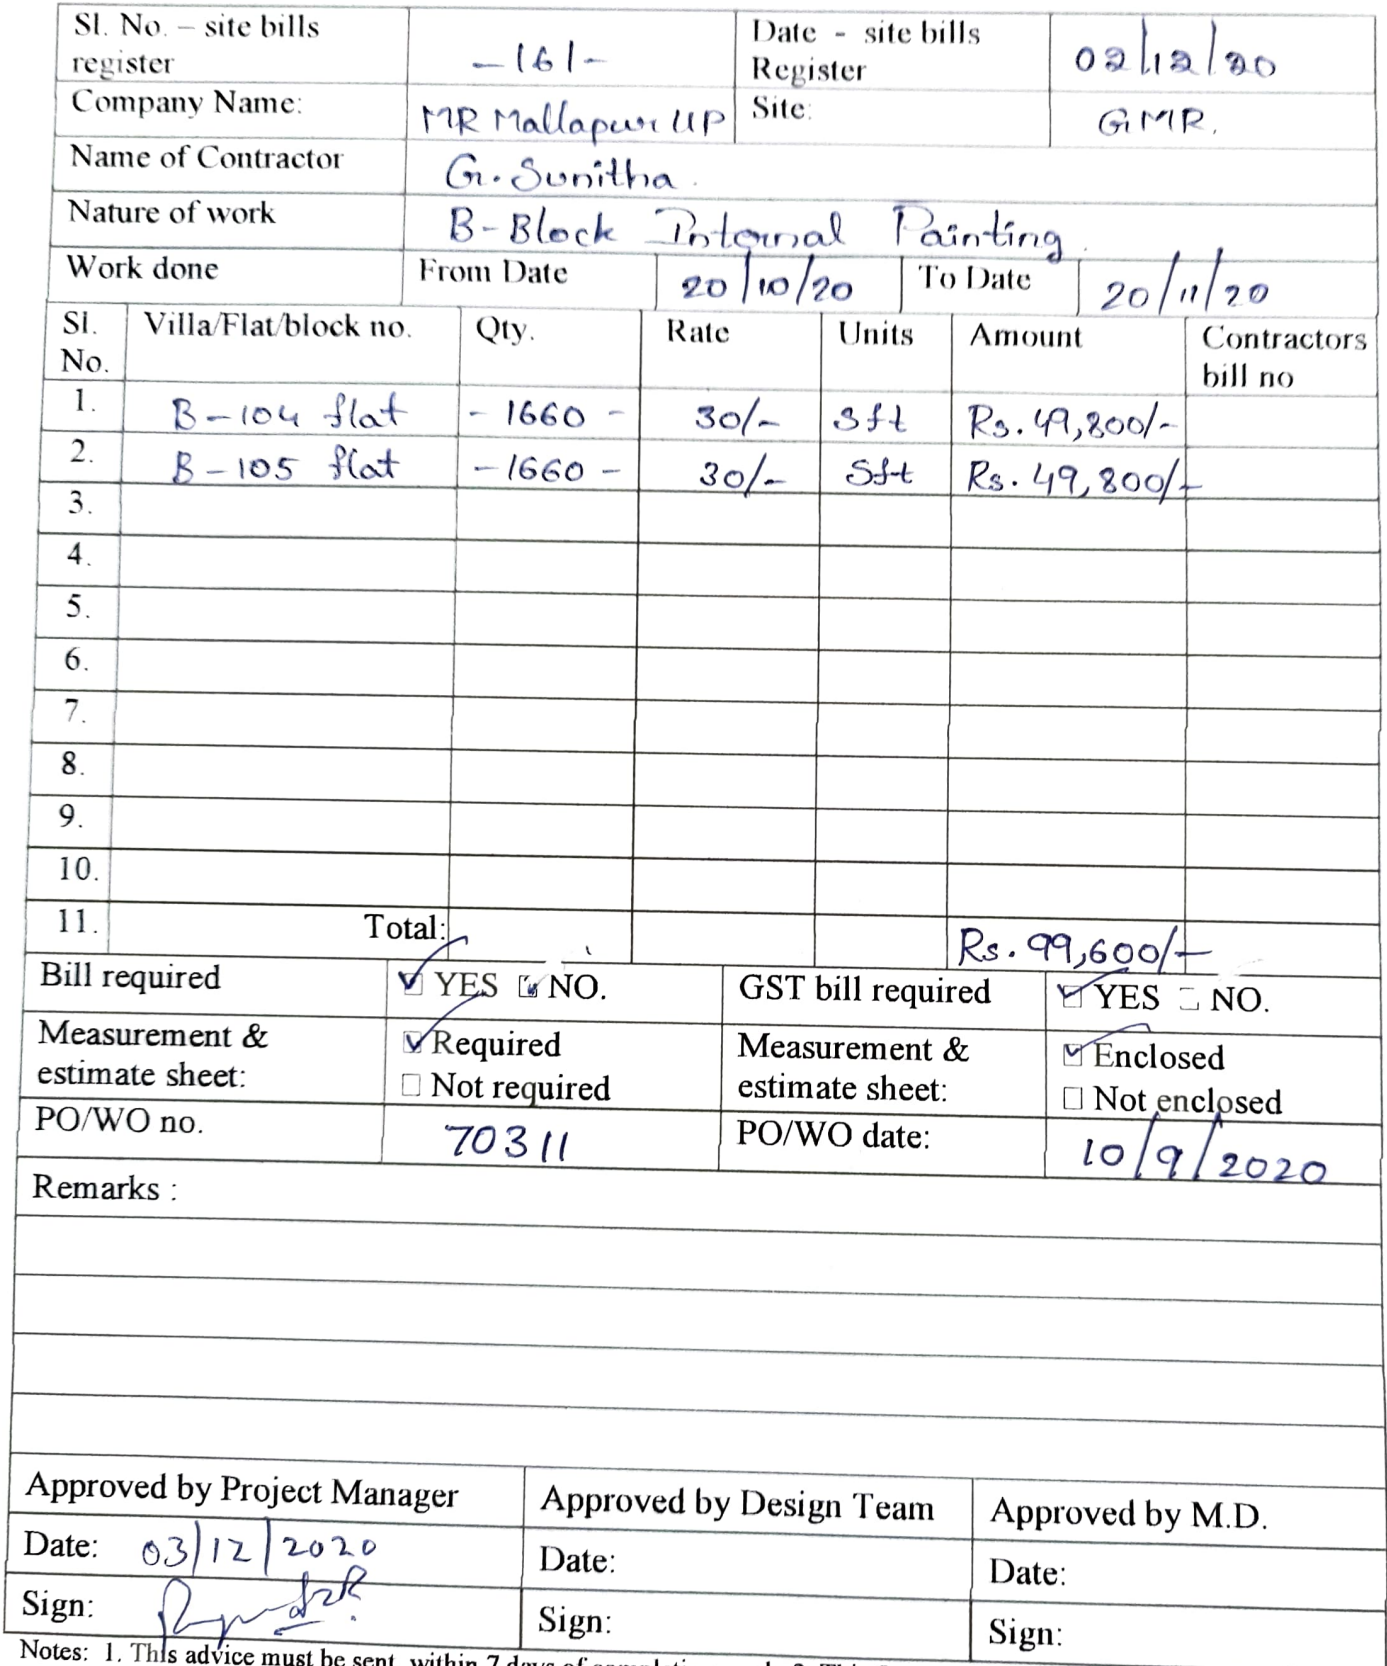 Sl. No. – site bills register -161- Date - site bills Register 02/12/20
Company Name: MR Mallapur UP Site: GMR.
Name of Contractor G. Sunitha.
Nature of work B-Block Internal Painting.
Work done From Date 20/10/20 To Date 20/11/20
Sl. No. Villa/Flat/block no. Qty. Rate Units Amount Contractors bill no
1. B-104 flat - 1660 - 30/- Sft Rs. 49,800/-
2. B-105 flat - 1660 - 30/- Sft Rs. 49,800/-
3.
4.
5.
6.
7.
8.
9.
10.
11. Total: Rs. 99,600/-
Bill required ☑ YES ☑ NO. GST bill required ☑ YES ☐ NO.
Measurement & estimate sheet: ☑ Required Measurement & estimate sheet: ☑ Enclosed
☐ Not required ☐ Not enclosed
PO/WO no. 70311 PO/WO date: 10/9/2020
Remarks :
Approved by Project Manager Approved by Design Team Approved by M.D.
Date: 03/12/2020 Date: Date:
Sign: Sign: Sign:
Notes: 1. This advice must be sent within 7 days of